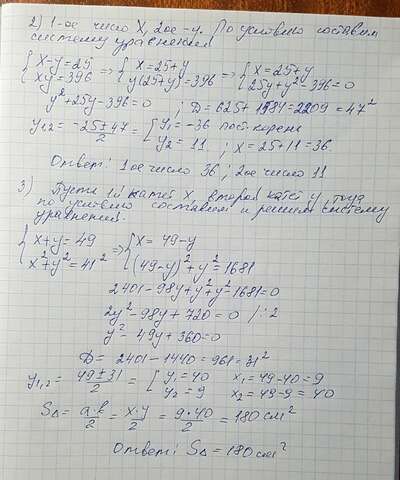 2) 1-ое число X, 2ое -y. По условию составим
систему уравнений
{x-y=25 xy=396 => {x=25+y y(25+y)=396 => {x=25+y 25y+y²-396=0
y²+25y-396=0 ; D=625+1584=2209=47²
y1,2 = (-25±47)/2 = [y1=-36 пост. корень y2=11 ; x=25+11=36
Ответ: 1ое число 36; 2ое число 11
3) Пусть 1й катет x, второй катет y, тогда
по условию составим и решим систему
уравнений.
{x+y=49 x²+y²=41² => {x=49-y (49-y)²+y²=1681
2401-98y+y²+y²-1681=0
2y²-98y+720=0 /:2
y²-49y+360=0
D=2401-1440=961=31²
y1,2 = (49±31)/2 = [y1=40 x1=49-40=9 y2=9 x2=49-9=40
SΔ = a·b/2 = x·y/2 = 9·40/2 = 180 см²
Ответ: SΔ=180 см²